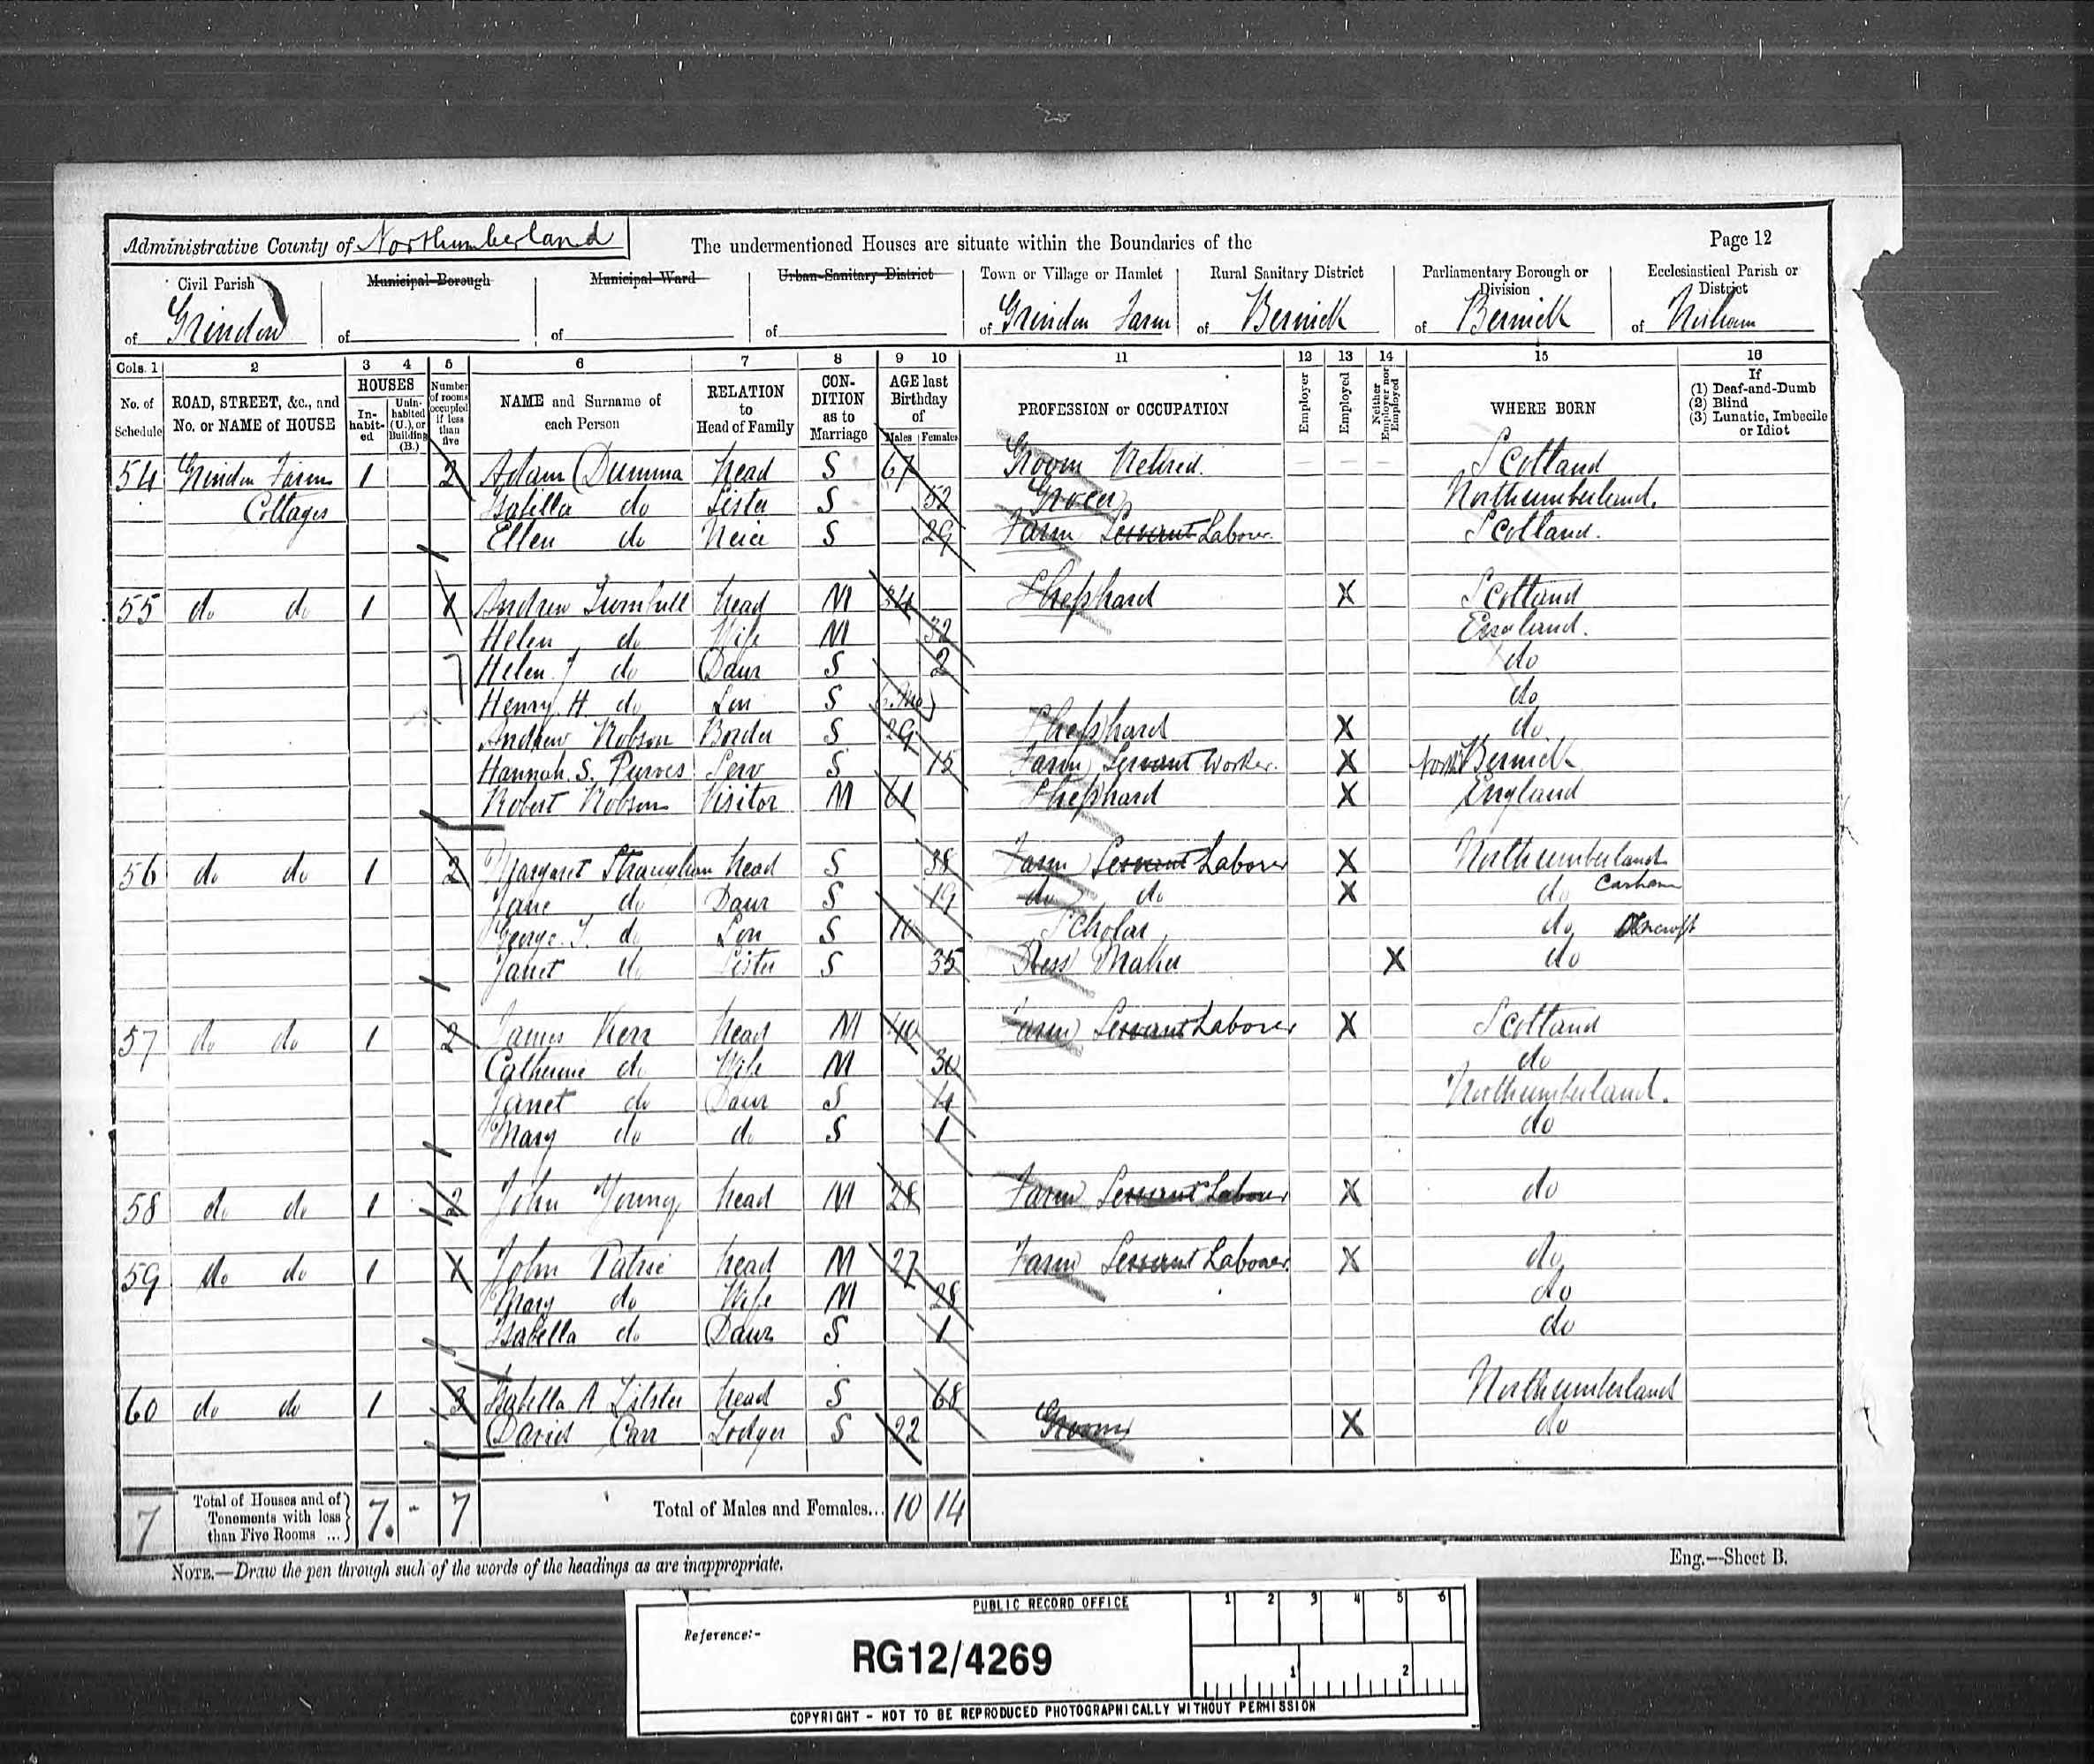 Administrative County of Northumberland The undermentioned Houses are situate within the Boundaries of the Page 12
Civil Parish Municipal Borough Municipal Ward Urban Sanitary District Town or Village or Hamlet Rural Sanitary District Parliamentary Borough or Division Ecclesiastical Parish or District
of Grindon of of of of Grindon Farm of Berwick of Berwick of Norham
Cols. 1 2 3 4 5 6 7 8 9 10 11 12 13 14 15 16
No. of Schedule ROAD, STREET, &c., and No. or NAME of HOUSE HOUSES In-habit-ed Unin-habited (U.), or Building (B.) Number of rooms occupied if less than five NAME and Surname of each Person RELATION to Head of Family CON-DITION as to Marriage AGE last Birthday of Males Females PROFESSION or OCCUPATION Employer Employed Neither Employer nor Employed WHERE BORN If (1) Deaf-and-Dumb (2) Blind (3) Lunatic, Imbecile or Idiot
54 Grindon Farm 1 2 Adam Dumma head S 67 Groom Retired. – – – Scotland
Cottages Isabella do Sister S 52 Grocer Northumberland.
Ellen do Neice S 29 Farm Servant Labourer Scotland.
55 do do 1 1 Andrew Turnbull head M 34 Shephard X Scotland
Helen do Wife M 32 England.
Helen J do Daur S 2 do
Henry H. do Son S 6 Mo do
Andrew Robson Border S 29 Shephard X do
Hannah S. Purves Serv S 15 Farm Servant Worker. X North Berwick
Robert Robson Visitor M 61 Shephard X England
56 do do 1 2 Margaret Straughan head S 38 Farm Servant Labourer X Northumberland
Jane do Daur S 19 do do X do Carham
George. T. do Son S 10 Scholar do Ancroft
Janet do Sister S 35 Dress Maker X do
57 do do 1 2 James Kerr head M 40 Farm Servant Labourer X Scotland
Catherine do Wife M 30 do
Janet do Daur S 4 Northumberland.
Mary do do S 1 do
58 do do 1 2 John Young head M 28 Farm Servant Labourer X do
59 do do 1 1 John Patrie head M 27 Farm Servant Labourer. X do
Mary do Wife M 28 do
Isabella do Daur S 1 do
60 do do 1 3 Isabella A Lilster head S 68 Northumberland
David Carr Lodger S 22 Groom X do
7 Total of Houses and of Tenements with less than Five Rooms ... 7. - 7 Total of Males and Females... 10 14
NOTE.—Draw the pen through such of the words of the headings as are inappropriate. Eng.—Sheet B.
PUBLIC RECORD OFFICE 1 2 3 4 5 6
Reference:-
RG12/4269
1 2
COPYRIGHT - NOT TO BE REPRODUCED PHOTOGRAPHICALLY WITHOUT PERMISSION